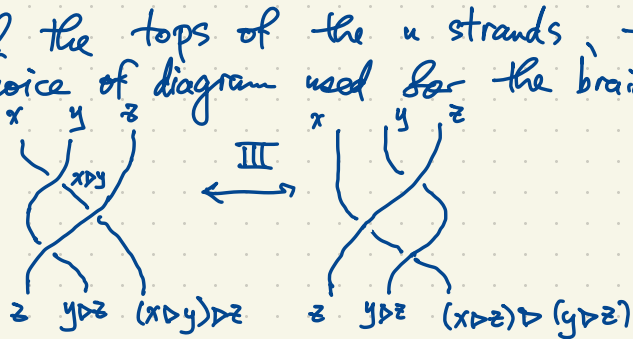 the tops of the n strands,
oice of diagram used for the brai
x y z x y z
x▷y III
z y▷z (x▷y)▷z z y▷z (x▷z)▷(y▷z)